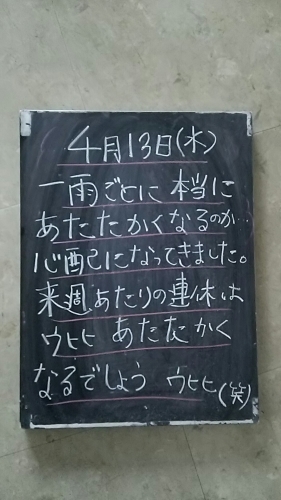 4月13日(水)
一雨ごとに 本当に
あたたかくなるのか‥
心配になってきました。
来週あたりの連休は
ウヒヒ あたたかく
なるでしょう ウヒヒ(笑)